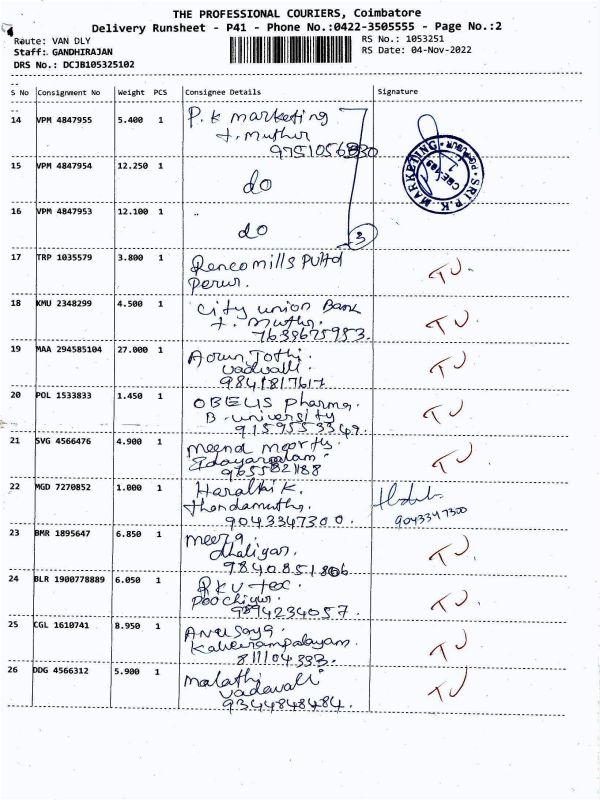 THE PROFESSIONAL COURIERS, Coimbatore
Delivery Runsheet - P41 - Phone No.:0422-3505555 - Page No.:2
Route: VAN DLY
RS No.: 1053251
Staff: GANDHIRAJAN
RS Date: 04-Nov-2022
DRS No.: DCJB105325102
S No Consignment No Weight PCS Consignee Details Signature
14 VPM 4847955 5.400 1 P.K marketing
t. muthur
9751056830
SRI P.K. MARKETING
CBE-109
15 VPM 4847954 12.250 1 do
16 VPM 4847953 12.100 1 do
3
17 TRP 1035579 3.800 1 Renco mills Pvt ltd TJ.
Perur.
18 KMU 2348299 4.500 1 City union Bank TJ.
t. muthu.
7639675953.
19 MAA 294585104 27.000 1 Arun Jothi. TJ.
vadvalli
9841817617
20 POL 1533833 1.450 1 OBELIS pharma. TJ.
B. university
9159553349.
21 SVG 4566476 4.900 1 meena moorthy TJ.
9655821188
22 MGD 7270852 1.000 1 K.
thondamuthu.
9043347300. 9043347300
23 BMR 1895647 6.850 1 meera. TJ.
dhaliyur.
9840851806
24 BLR 1900778889 6.050 1 RKV tex. TJ.
Poochiyur.
9894234057.
25 CGL 1610741 8.950 1 Anusoya. TJ.
Kalveerampalayam.
811104393.
26 DDG 4566312 5.900 1 malathi TJ
vadavalli
9344848484.